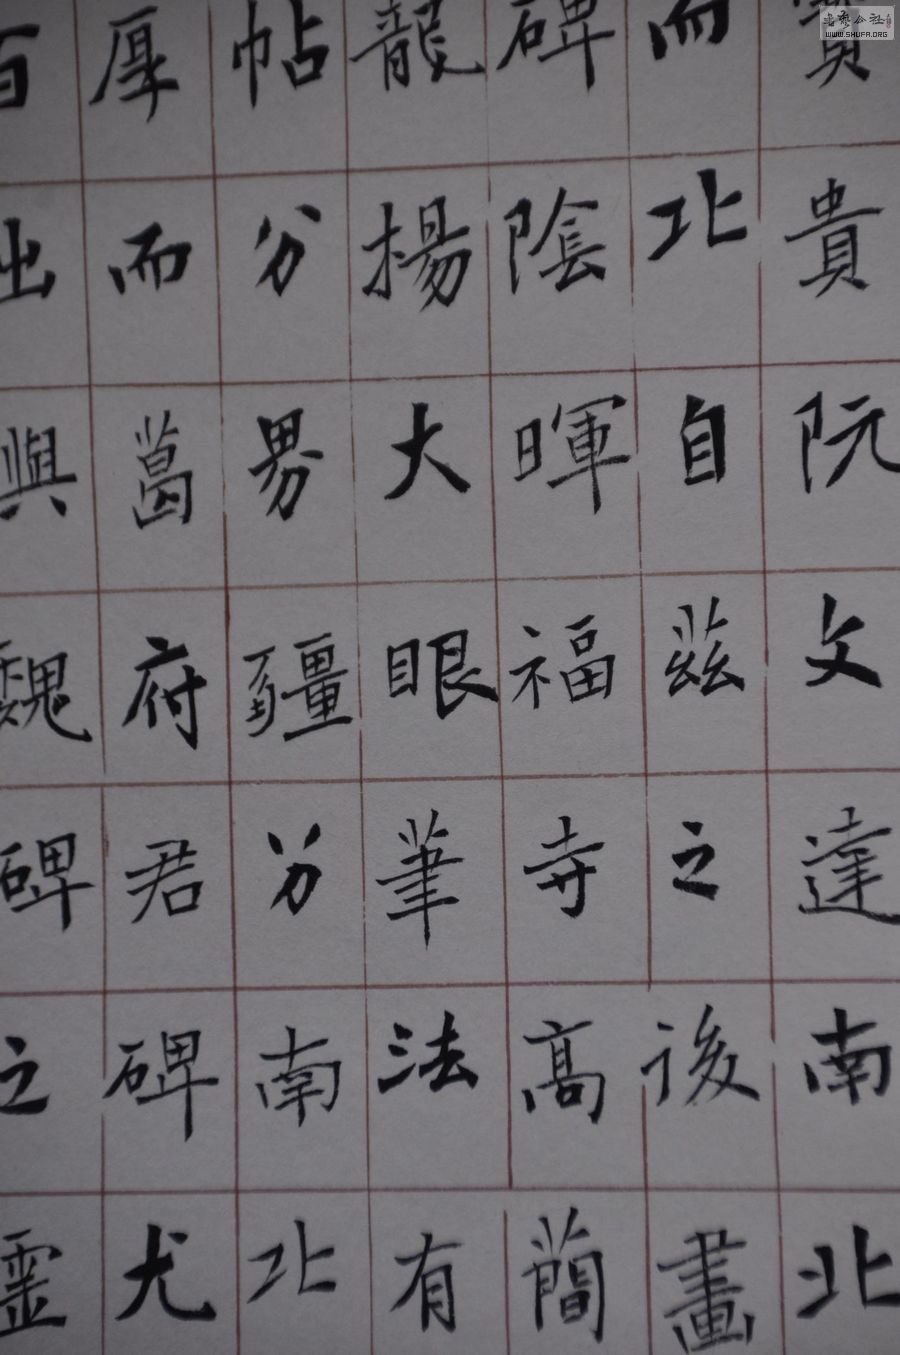 寶貴阮文達南北
而北自茲之後畫
碑陰暉福寺高簡
龍揚大眼筆法有
帖分界疆分南北
厚而葛府君碑尤
百出與魏碑之靈
WWW.SHUFA.ORG